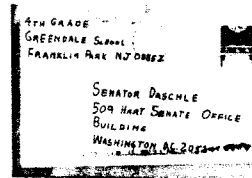 4TH GRADE
GREENDALE SCHOOL
FRANKLIN PARK NJ 08852
SENATOR DASCHLE
509 HART SENATE OFFICE
BUILDING
WASHINGTON D.C. 20510